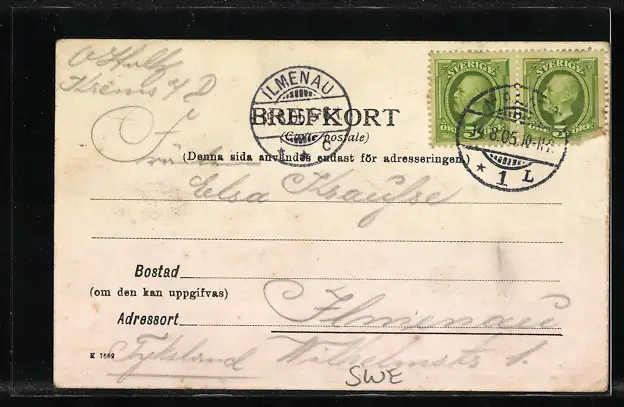 Krems a/D
SVERIGE SVERIGE
ÖRE 5 ÖRE 5 ÖRE
ILMENAU
BREFKORT
(Carte postale)
(Denna sida användes endast för adresseringen.)
8.05.10-11
* 1 L
Fräulein
Elsa Krauße
Bostad
(om den kan uppgifvas)
Adressort Ilmenau
K 7669
Tyksland Wilhelmstr 1.
SWE